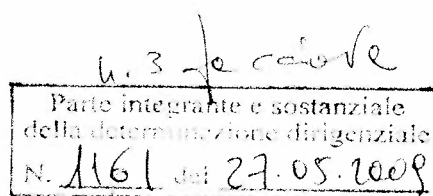 n. 3 facciate
Parte integrante e sostanziale
della determinazione dirigenziale
N. 1161 del 27.05.2009